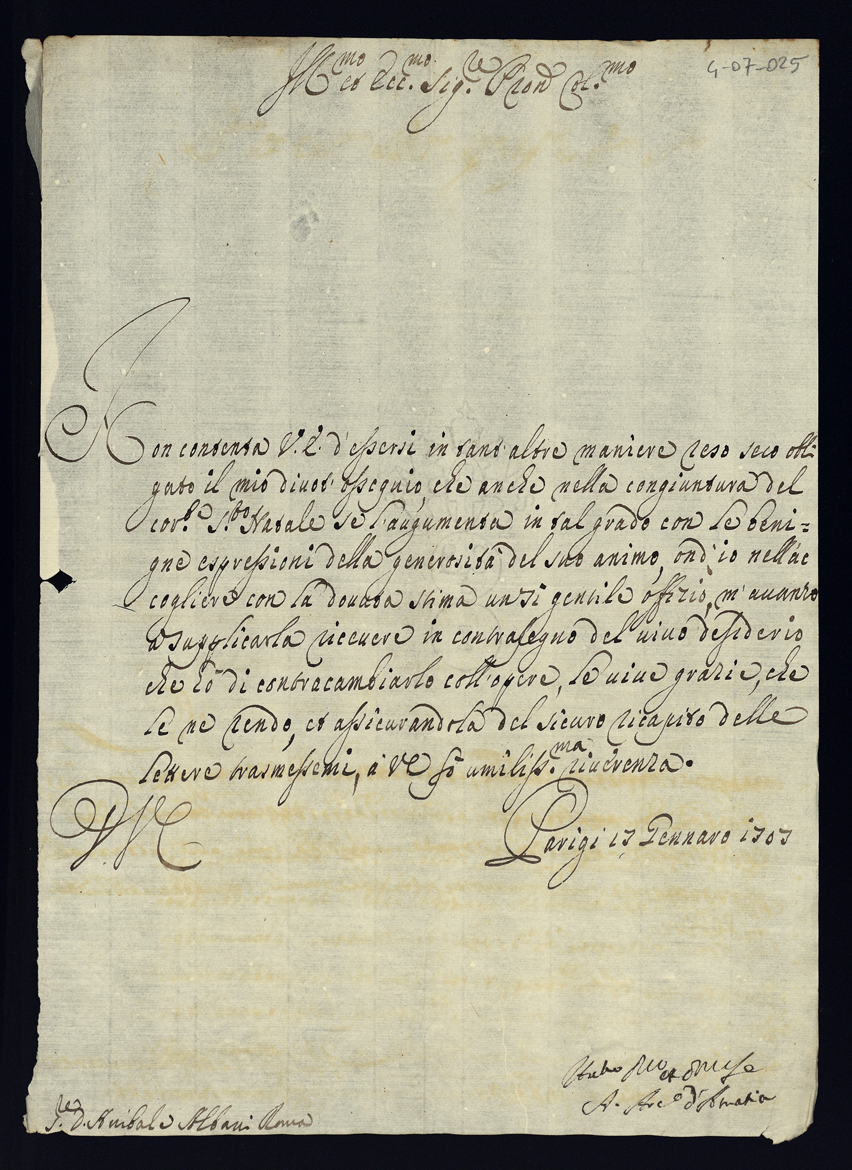 4-07-025
Ill.mo et Ecc.mo Sig.re Pron Col.mo
Non contenta V.E. d'essersi in tant'altre maniere reso seco obli
gato il mio divot' ossequio, che anche nella congiuntura del
cor.te S.to Natale se l'augumenta in tal grado con le beni=
gne espressioni della generosità del suo animo, ond'io nell'ac
cogliere con la dovuta stima un sì gentile offizio, m'avanzo
a supplicarla ricevere in contrasegno del vivo desiderio
che hò di contracambiarlo coll'opere, le vive grazie, che
le ne rendo, et assicurandola del sicuro ricapito delle
lettere trasmessemi, à VE fò umiliss.ma riverenza.
VE
Parigi 17 Gennaro 1707
A. Arc.o d'
S.re D. Anibale Albani Roma